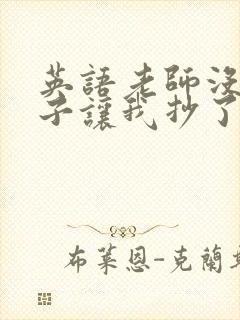 英語老師沒
子讓我抄了
布萊恩-克蘭